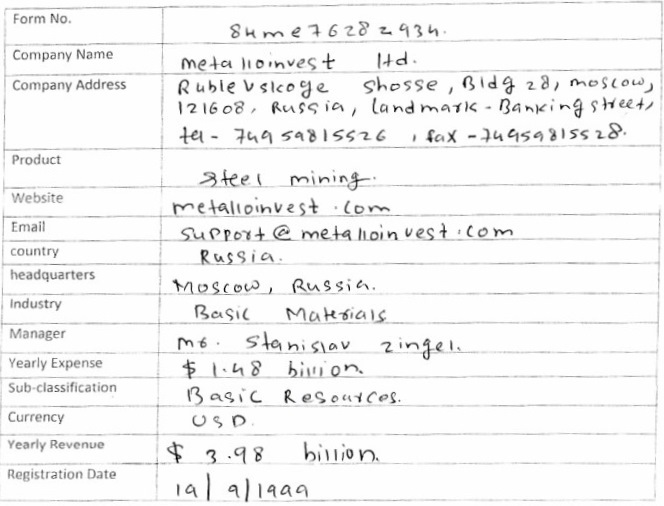 Form No. 84me76282934.
Company Name metalloinvest ltd.
Company Address Rublevskoge shosse, Bldg 28, moscow,
121608, Russia, landmark - Banking street,
tel - 74959815526, fax - 74959815528.
Product steel mining.
Website metalloinvest.com
Email support@metalloinvest.com
country Russia.
headquarters Moscow, Russia.
Industry Basic Materials
Manager mr. Stanislav zingel.
Yearly Expense $ 1.48 billion.
Sub-classification Basic Resources.
Currency USD.
Yearly Revenue $ 3.98 billion.
Registration Date 19/9/1999